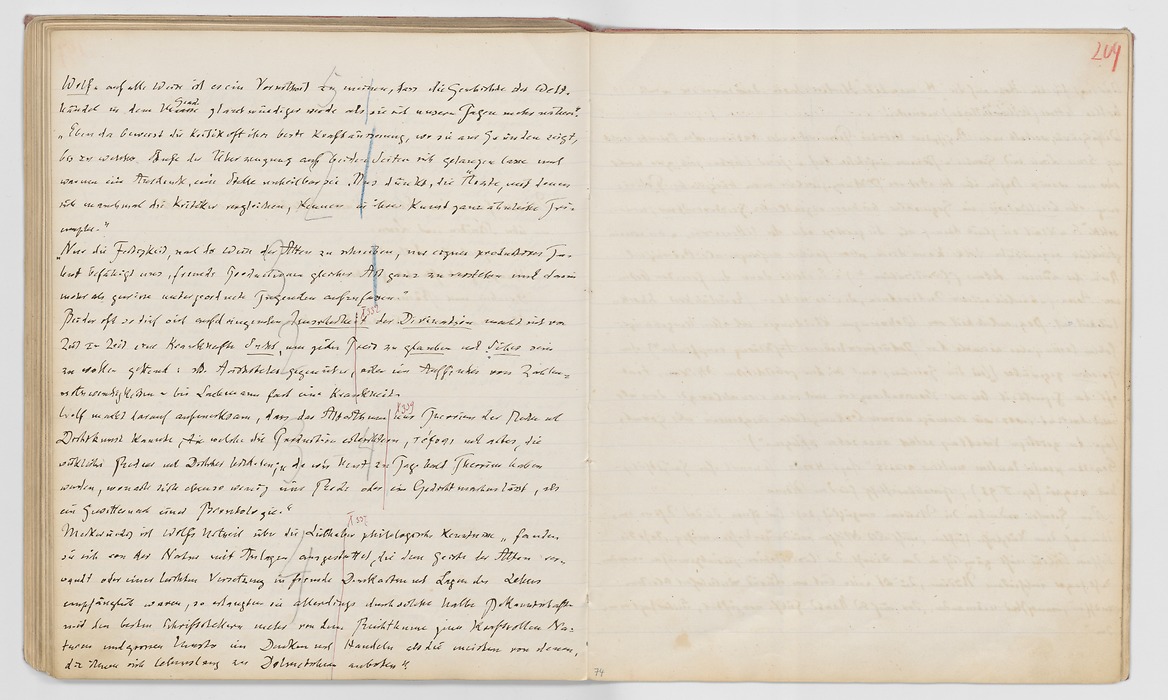 Wolf: auf alle Weise ist es ein Vorurtheil zu meinen, dass die Geschichte der Welt-
händel in dem Grad glaubwürdiger werde als sie sich unsern Tagen mehr nähert."
„Eben da beweist die Kritik oft ihre beste Kraftäusserung, wo sie aus Gründen zeigt,
bis zu welcher Stufe der Überzeugung auf beiden Seiten sich gelangen lasse und
warum ein Ausdruck, eine Stelle unheilbar sei. Uns dünkt, die Ärzte, mit denen
sich manchmal die Kritiker vergleichen, kennen in ihrer Kunst ganz ähnliche Tri-
umphe."
„Nur die Fertigkeit, nach der Weise der Alten zu schreiben, nur eignes productives Ta-
lent befähigt uns, fremde Productionen gleicher Art ganz zu verstehen und darin
mehr als gewisse untergeordnete Tugenden aufzufassen."
X 339
Bei der oft so tief sich aufdringenden der Divination macht sich von
Zeit zu Zeit eine krankhafte Sucht, um jeden Preis zu glauben und sicher sein
zu wollen geltend: zB. Aristoteles gegenüber, oder im Auffinden von Zahlen-
bis Lachmann fast eine Krankheit.
X 339
Wolf macht darauf aufmerksam, dass das Alterthum nur Theorien der Rede und
Dichtkunst kannte, die welche die Production erleichtern, und artes, die
wirkliche Redner und Dichter bildeten, „da wir heut zu Tage bald Theorien haben
werden, wonach sich ebenso wenig eine Rede oder ein Gedicht machen lässt, als
ein Gewitter nach einer Brontologie."
X 337
Merkwürdig ist Wolfs Urtheil über die Liebhaber philologischer Kenntnisse „fanden
sie sich von der Natur mit Anlagen ausgestattet, die dem Geiste der Alten ver-
wandt oder einer leichten Versetzung in fremde Denkarten und Lagen des Lebens
empfänglich waren, so erlangten sie allerdings durch solche halbe Bekanntschaft
mit den besten Schriftstellern mehr von dem Reichthume jener kraftvollen Na-
turen und grossen Muster im Denken und Handeln als die meisten von denen,
die ihnen sich lebenslang zu Dolmetschern anboten."
204
74